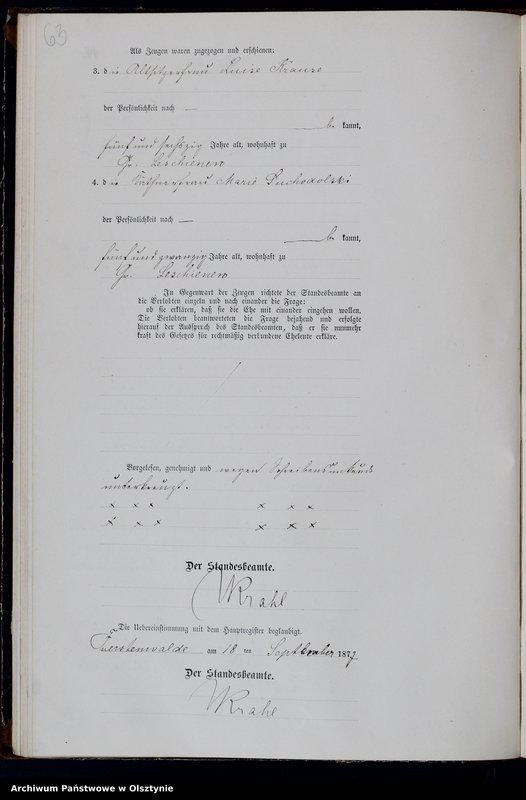 63
Als Zeugen waren zugezogen und erschienen:
3. die Altsitzerfrau Luise Krause
der Persönlichkeit nach —
be kannt,
fünfundsechszig Jahre alt, wohnhaft zu
Gr. Leschienen
4. die Käthnerfrau Marie Suchodolski
der Persönlichkeit nach —
be kannt,
fünfundzwanzig Jahre alt, wohnhaft zu
Gr. Leschienen
In Gegenwart der Zeugen richtete der Standesbeamte an
die Verlobten einzeln und nach einander die Frage:
ob sie erklären, daß sie die Ehe mit einander eingehen wollen.
Die Verlobten beantworteten die Frage bejahend und erfolgte
hierauf der Ausspruch des Standesbeamten, daß er sie nunmehr
kraft des Gesetzes für rechtmäßig verbundene Eheleute erkläre.
Vorgelesen, genehmigt und wegen Schreibensunkunde
unterkreuzt.
x x x x x x
x x x x x x
Der Standesbeamte.
Krahl
Die Uebereinstimmung mit dem Hauptregister beglaubigt.
am 18 ten September 1877
Der Standesbeamte.
Krahl
Archiwum Państwowe w Olsztynie